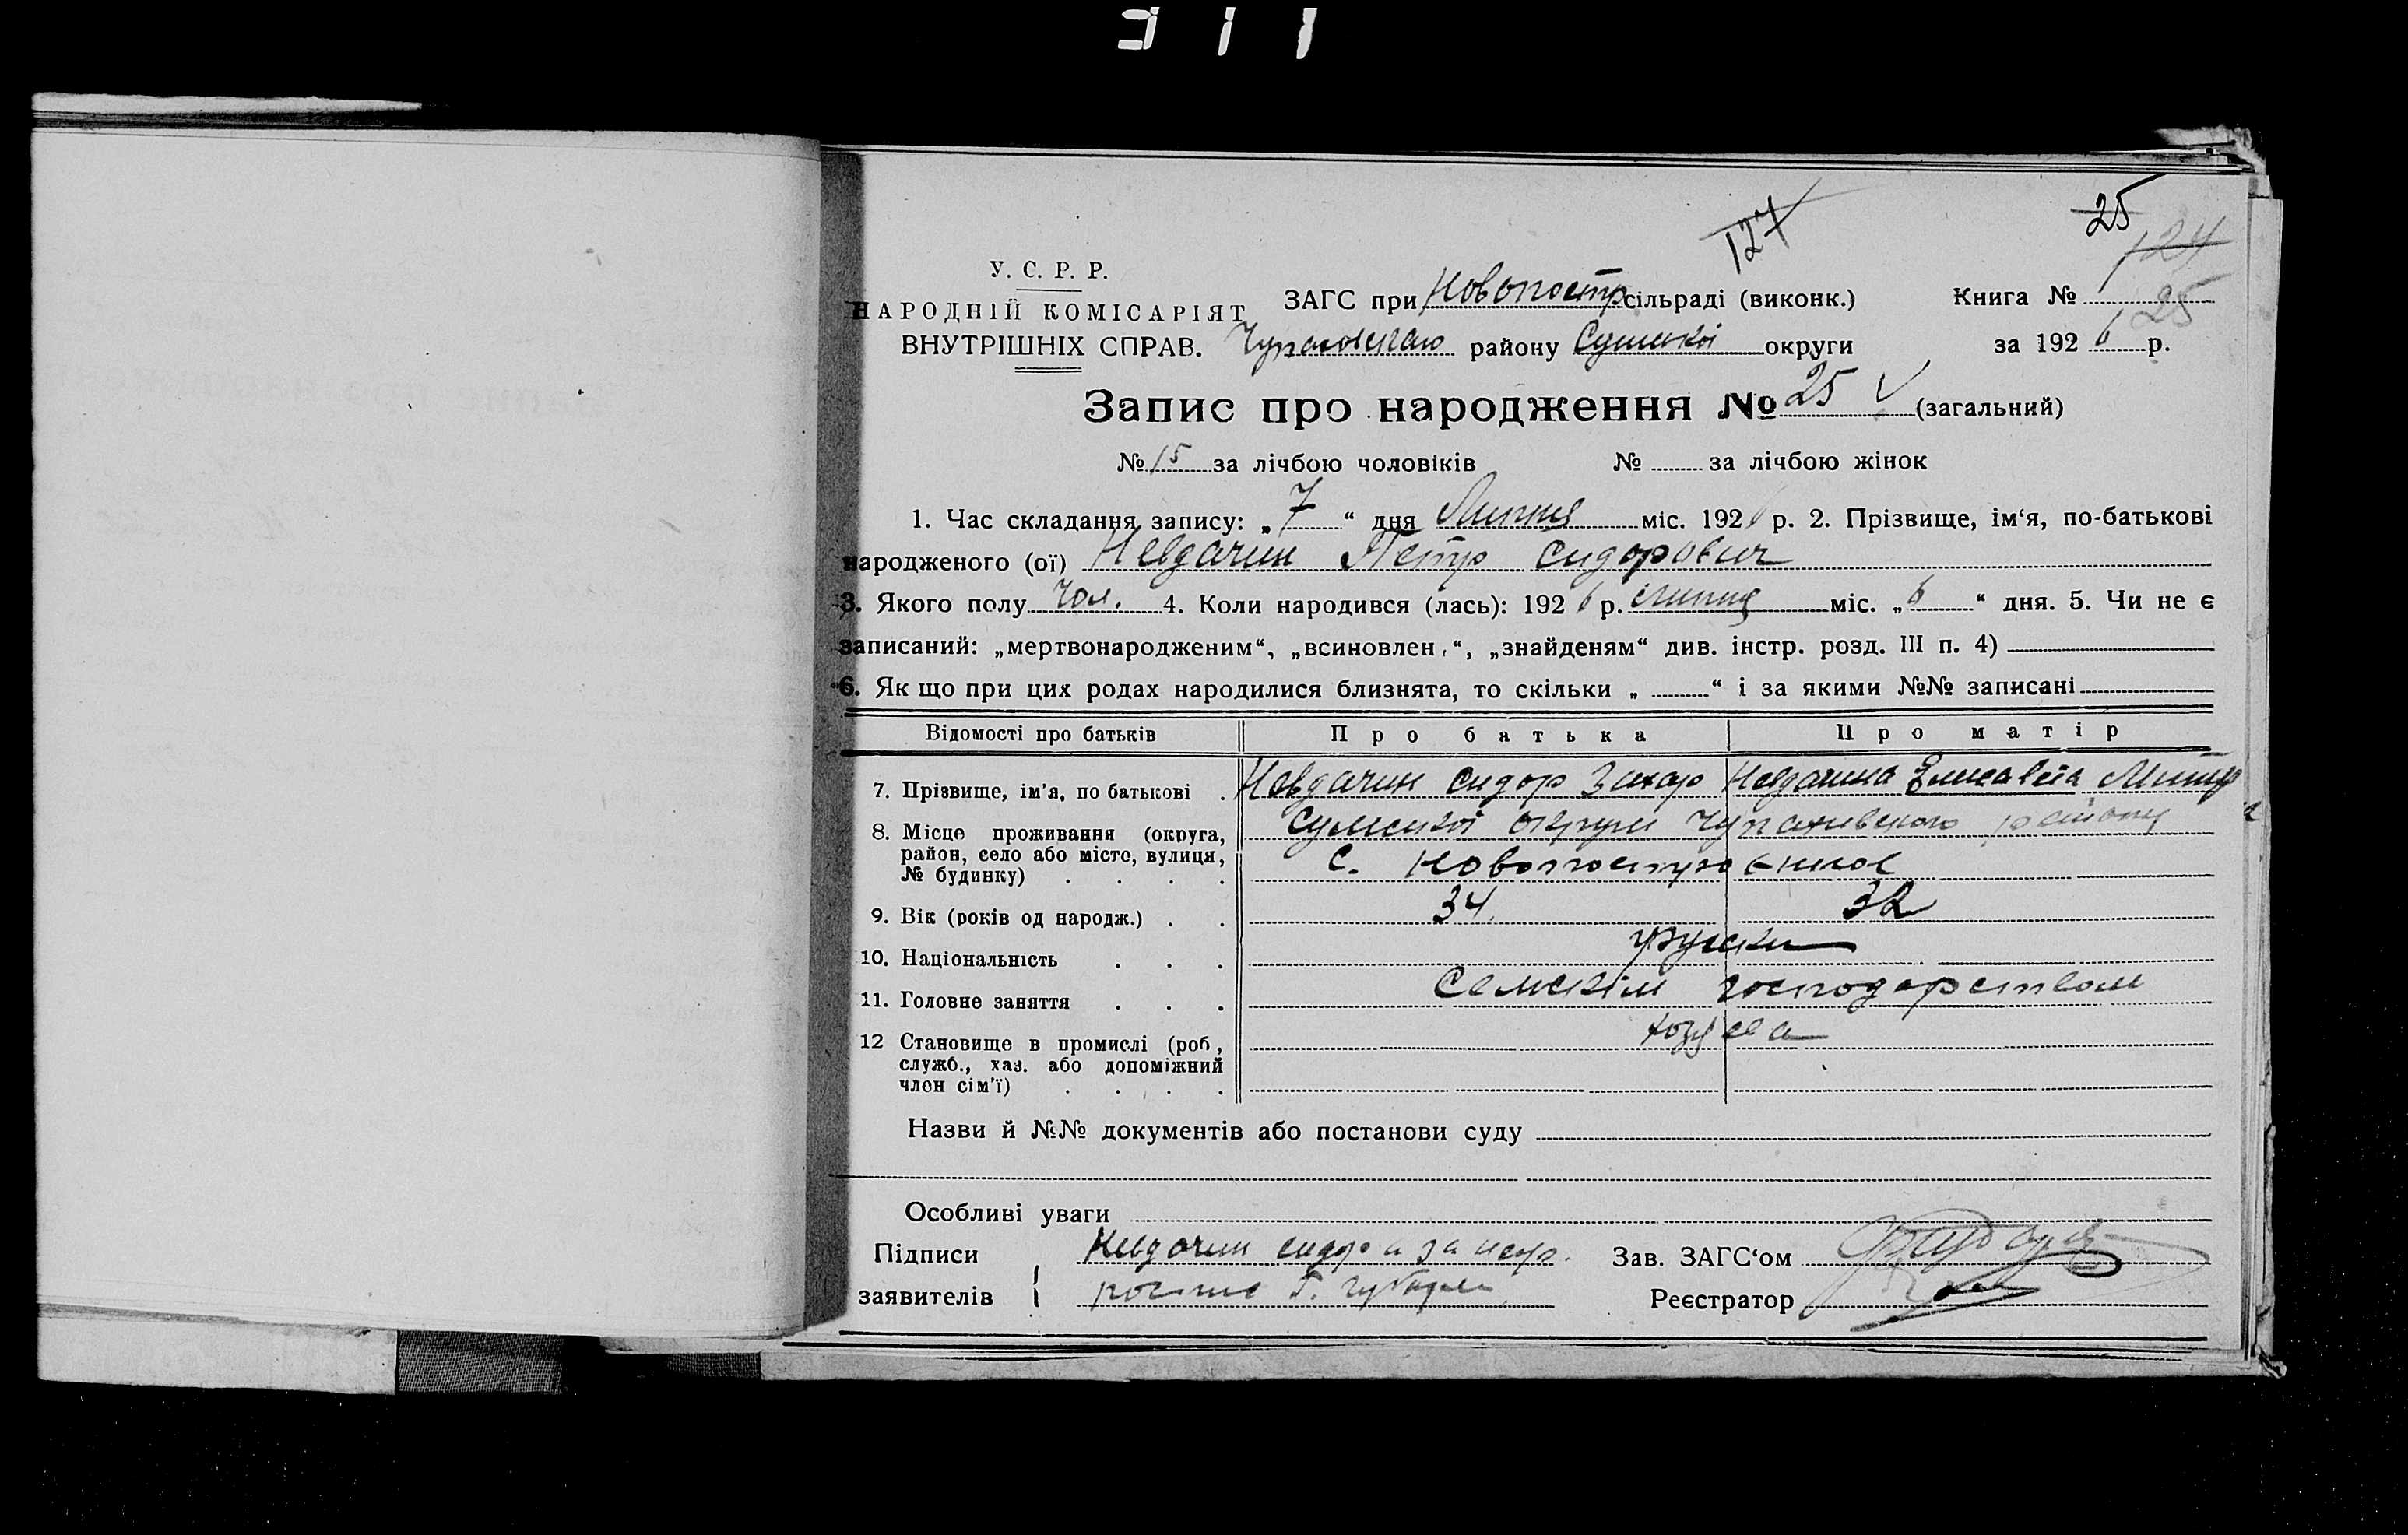 311
127
25
124
У. С. Р. Р.
НАРОДНІЙ КОМІСАРІЯТ
ВНУТРІШНІХ СПРАВ.
ЗАГС при Новопостр сільраді (виконк.)
Книга № 25
району Сумської округи
за 1926 р.
Запис про народження № 25 (загальний)
№ 15 за лічбою чоловіків № за лічбою жінок
1. Час складання запису: „7“ дня Липня міс. 1926 р. 2. Прізвище, ім‘я, по-батькові
народженого (ої) Невдачин Петр Сидорович
3. Якого полу чол. 4. Коли народився (лась): 1926 р. Липня міс. „6“ дня. 5. Чи не є
записаний: „мертвонародженим“, „всиновлен.“, „знайденям“ див. інстр. розд. III п. 4)
6. Як що при цих родах народилися близнята, то скільки „ “ і за якими №№ записані
Відомості про батьків Про батька Про матір
7. Прізвище, ім'я, по батькові . Невдачин Сидор Захар Невдачина Елисавета Митр
8. Місце проживання (округа, район, село або місто, вулиця, № будинку) . . . . Сумської округи району
с. Новопостроенное
9. Вік (років од народж.) . . 34. 32
10. Національність . . . руски
11. Головне заняття . . . Селским господарством
12 Становище в промислі (роб, служб., хаз. або допоміжний член сім'ї) . . . .
Назви й №№ документів або постанови суду
Особливі уваги
Підписи
заявителів
Невдачин
Зав. ЗАГС‘ом
Реєстратор